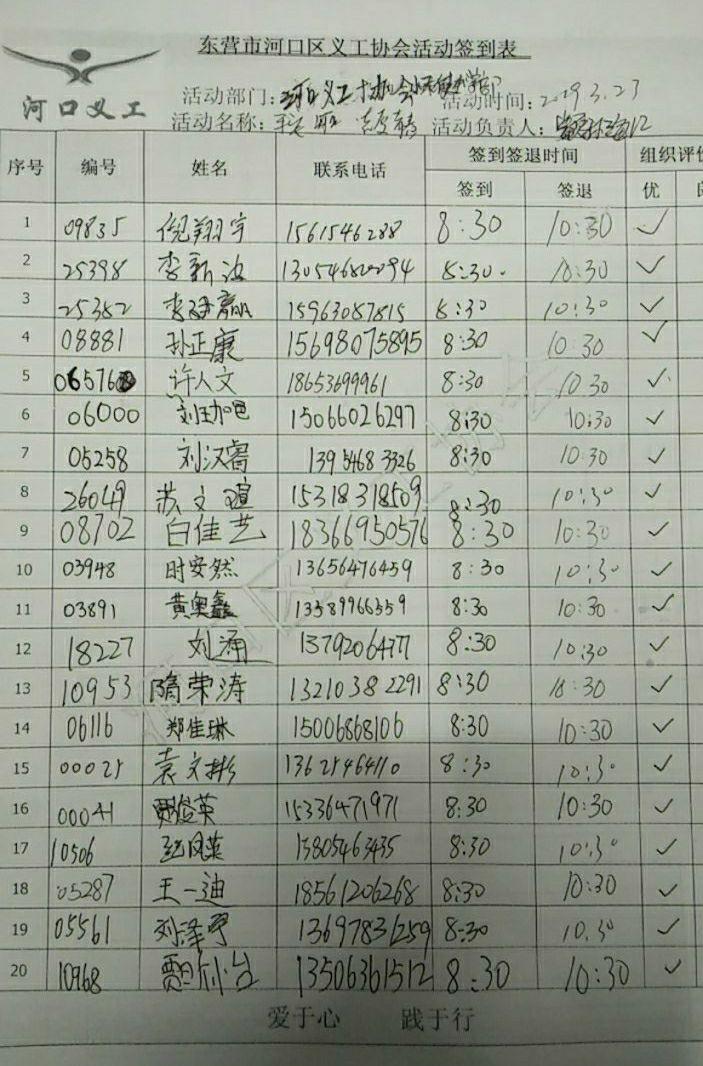 东营市河口区义工协会活动签到表
河口义工
活动部门：河口义工协会 活动时间：2019.3.23
活动名称： 活动负责人：
序号 编号 姓名 联系电话 签到签退时间 组织评价
签到 签退 优 良
1 09835 倪翔宇 1561546288 8:30 10:30 ✓
2 25398 李新汝 8:30 10:30 ✓
3 25382 15963087815 8:30 10:30 ✓
4 08881 孙正康 15698075895 8:30 10 30 ✓
5 06576 许人文 18653699961 8:30 10 30 ✓
6 06000 15066026297 8:30 10:30 ✓
7 05258 刘汉睿 13954683326 8:30 10:30 ✓
8 26049 苏文瑄 15318318509 8:30 10:30 ✓
9 08702 白佳艺 18366950576 8:30 10:30 ✓
10 03948 时安然 13656476459 8:30 10:30 ✓
11 03891 黄奥鑫 13589966559 8:30 10:30 ✓
12 18227 刘涌 8:30 10:30 ✓
13 10953 隋荣涛 13210382291 8:30 10:30 ✓
14 06116 郑佳琳 15006868106 8:30 10:30 ✓
15 00025 袁文彬 13625464110 8:30 10:30 ✓
16 00041 贾俊英 15336471971 8:30 10:30 ✓
17 10506 15805463435 8:30 10:30 ✓
18 05287 王一迪 18561206268 8:30 10:30 ✓
19 05561 刘泽宇 13697831259 8:30 10:30 ✓
20 10968 13506361512 8:30 10:30 ✓
爱于心 践于行